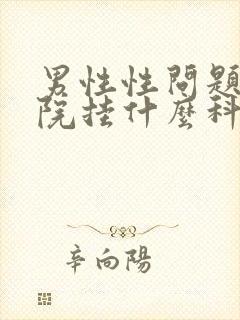 男性性問題
院挂什麼科
辛向陽